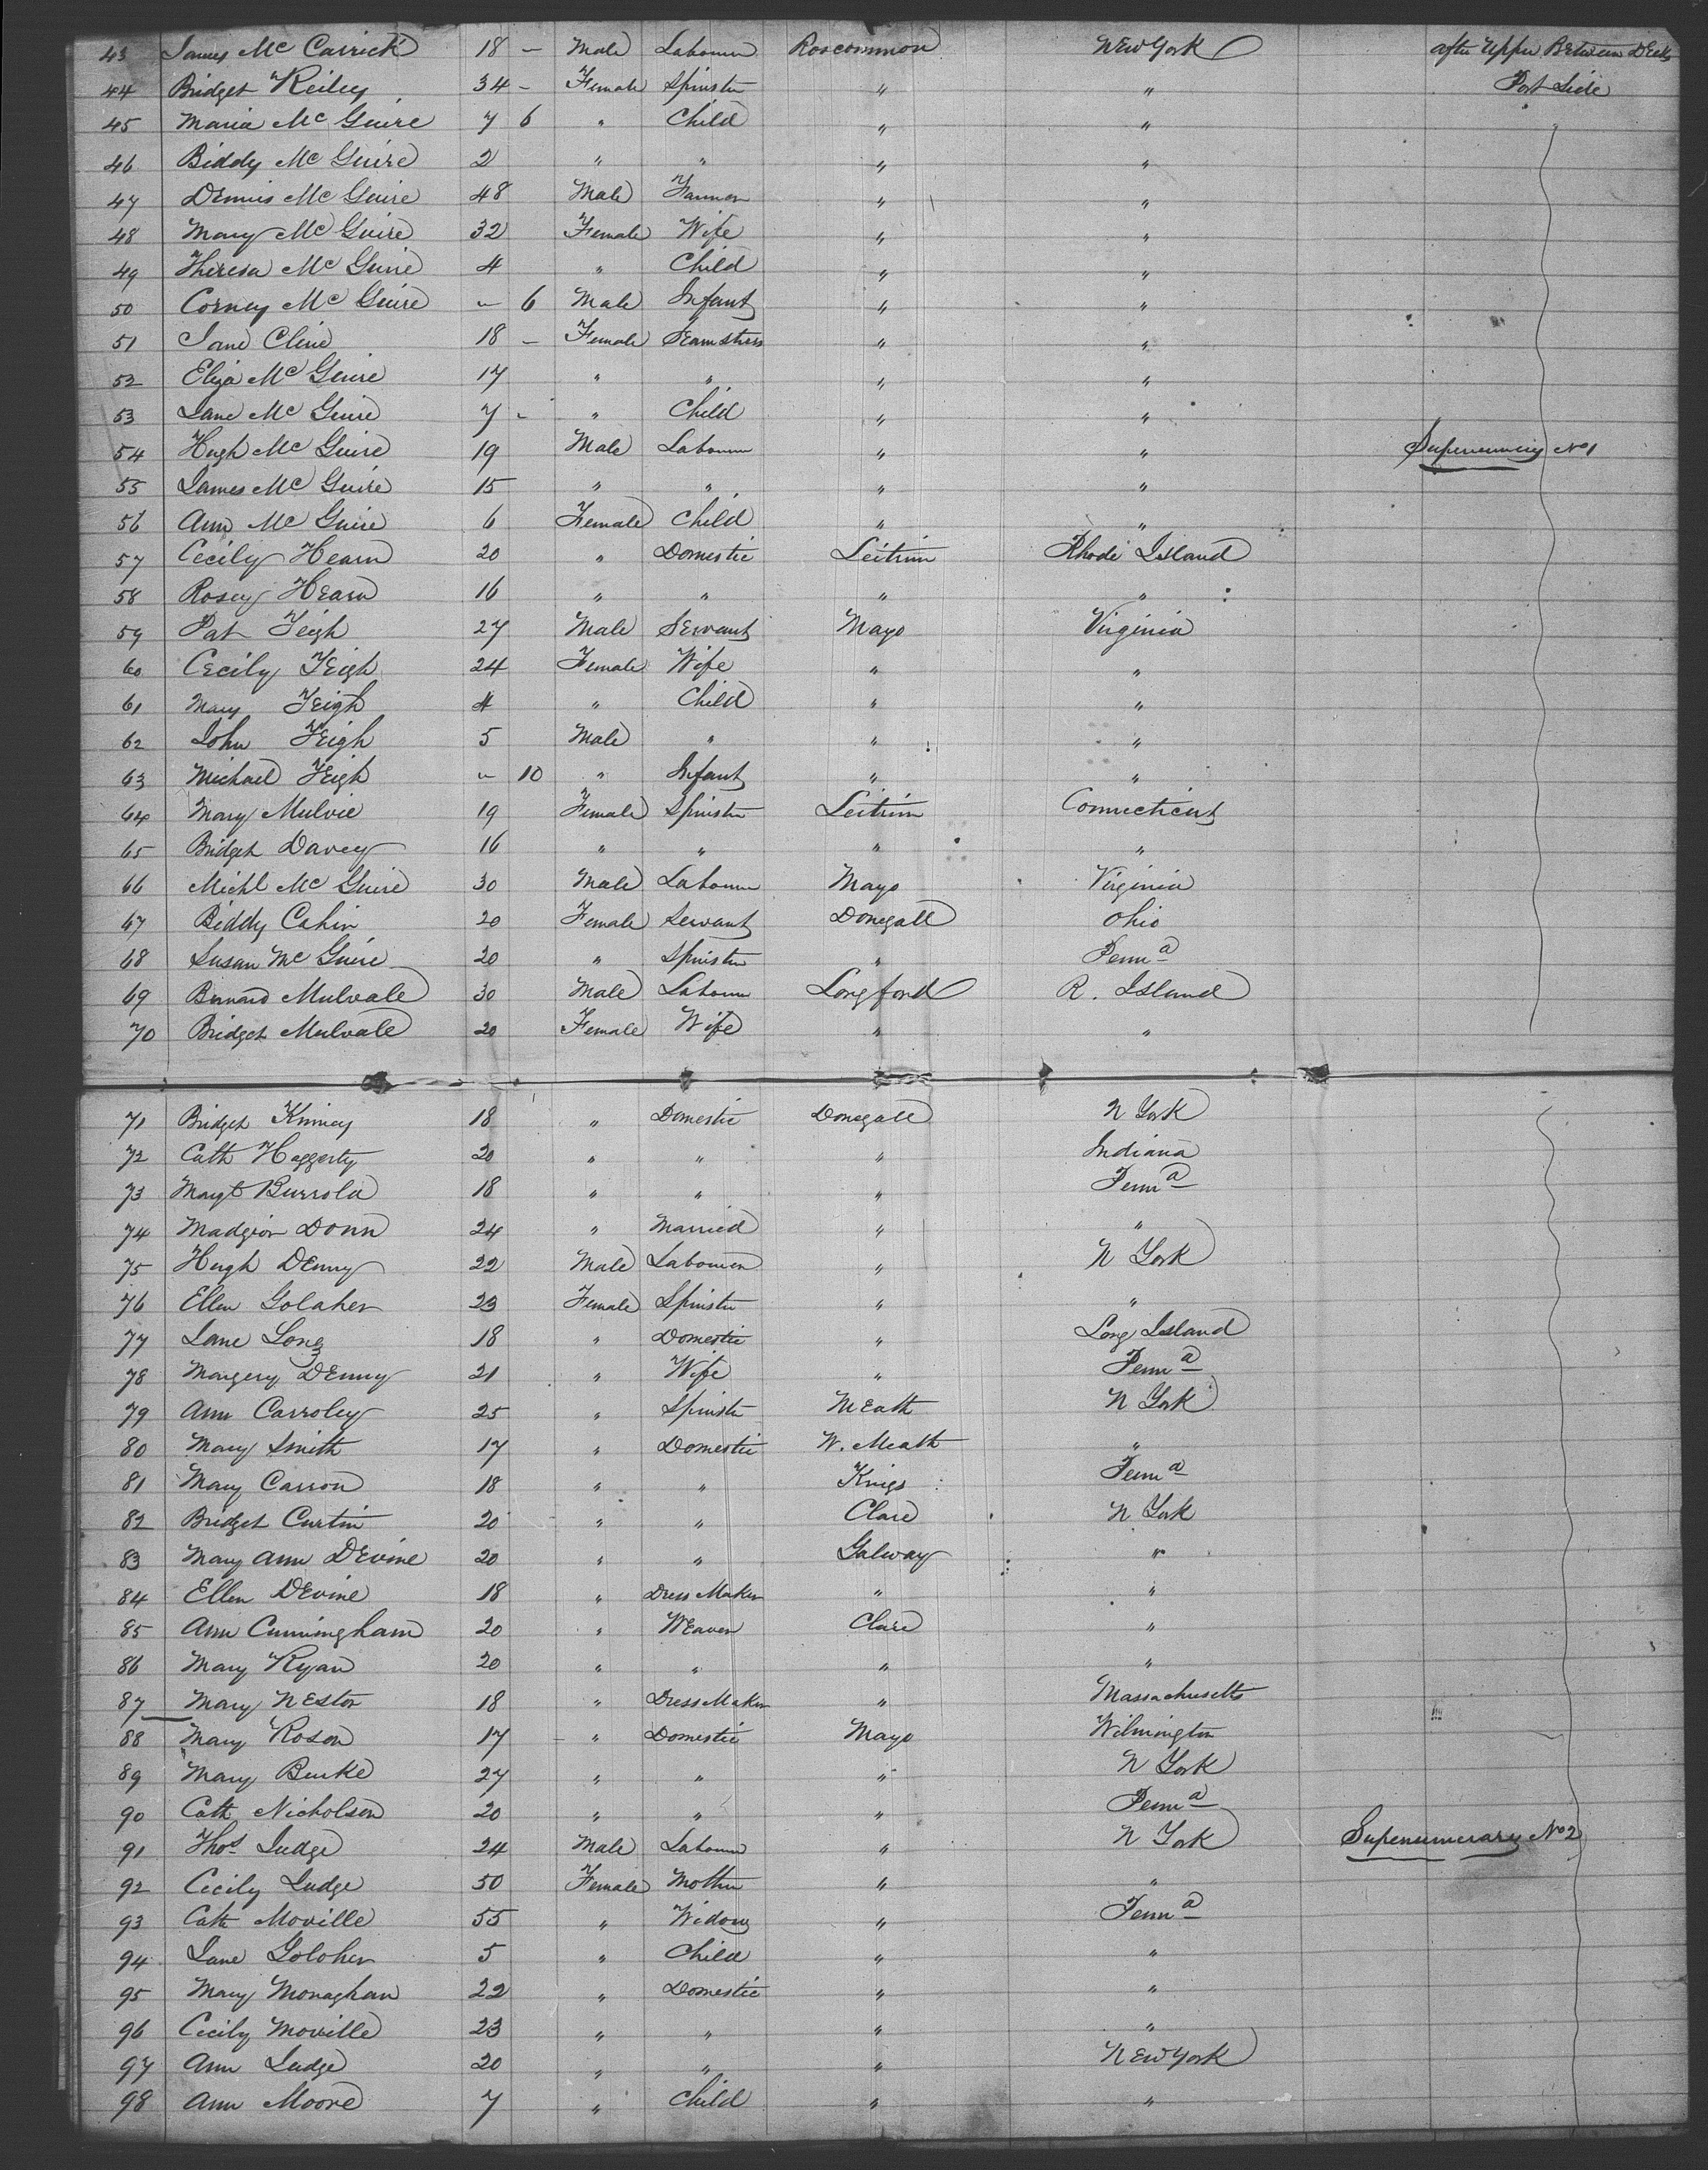 43 James Mc Carrick 18 – Male Labourer Roscommon New York after Upper Between Decks
44 Bridget Reiley 34 – Female Spinster " " Port Side
45 Maria Mc Guire 7 6 " Child " "
46 Biddy Mc Guire 2 " " " "
47 Dennis Mc Guire 48 Male Farmer " "
48 Mary Mc Guire 32 Female Wife " "
49 Theresa Mc Guire 4 " Child " "
50 Corney Mc Guire – 6 Male Infant " "
51 Jane Cline 18 – Female Seamstress " "
52 Eliza Mc Guire 17 " " " "
53 Jane Mc Guire 7 – " Child " "
54 Hugh Mc Guire 19 Male Labourer " " Supernumerary No 1
55 James Mc Guire 15 " " " "
56 Ann Mc Guire 6 Female Child " "
57 Cecily Hearn 20 " Domestic Leitrim Rhode Island
58 Rosey Hearn 16 " " " "
59 Pat Feigh 27 Male Servant Mayo Virginia
60 Cecily Feigh 24 Female Wife " "
61 Mary Feigh 4 " Child " "
62 John Feigh 5 Male " " "
63 Michael Feigh – 10 " Infant " "
64 Mary Mulvie 19 Female Spinster Leitrim Connecticut
65 Bridget Davey 16 " " " "
66 Michl Mc Guire 30 Male Labourer Mayo Virginia
67 Biddy Cahin 20 Female Servant Donegall Ohio
68 Susan Mc Guire 20 " Spinster " Penna
69 Bernard Mulvale 30 Male Labourer Longford R. Island
70 Bridget Mulvale 20 Female Wife " "
71 Bridget Kinney 18 " Domestic Donegall N York
72 Cath Haggerty 20 " " " Indiana
73 Margt Burrola 18 " " " Penna
74 Madgior Donn 24 " Married " "
75 Hugh Denny 22 Male Labourer " N York
76 Ellen Golaher 23 Female Spinster " "
77 Jane Long 18 " Domestic " Long Island
78 Margery Denny 21 " Wife " Penna
79 Ann Carroley 25 " Spinster Meath N York
80 Mary Smith 17 " Domestic W. Meath "
81 Mary Carron 18 " " Kings Penna
82 Bridget Curtin 20 " " Clare N York
83 Mary Ann Devine 20 " " Galway "
84 Ellen Devine 18 " Dress Maker " "
85 Ann Cunningham 20 " Weaver Clare "
86 Mary Ryan 20 " " " "
87 Mary Nestor 18 " Dress Maker " Massachusetts
88 Mary Roson 17 – " Domestic Mayo Wilmington
89 Mary Burke 27 " " " N York
90 Cath Nicholson 20 " " " Penna
91 Thos Judge 24 Male Labourer " N York Supernumerary No 2
92 Cicily Judge 50 Female Mother " "
93 Cath Moville 55 " Widow " Penna
94 Jane Goloher 5 " Child " "
95 Mary Monaghan 22 " Domestic " "
96 Cecily Moville 23 " " " "
97 Ann Judge 20 " " " New York
98 Ann Moore 7 " Child " "